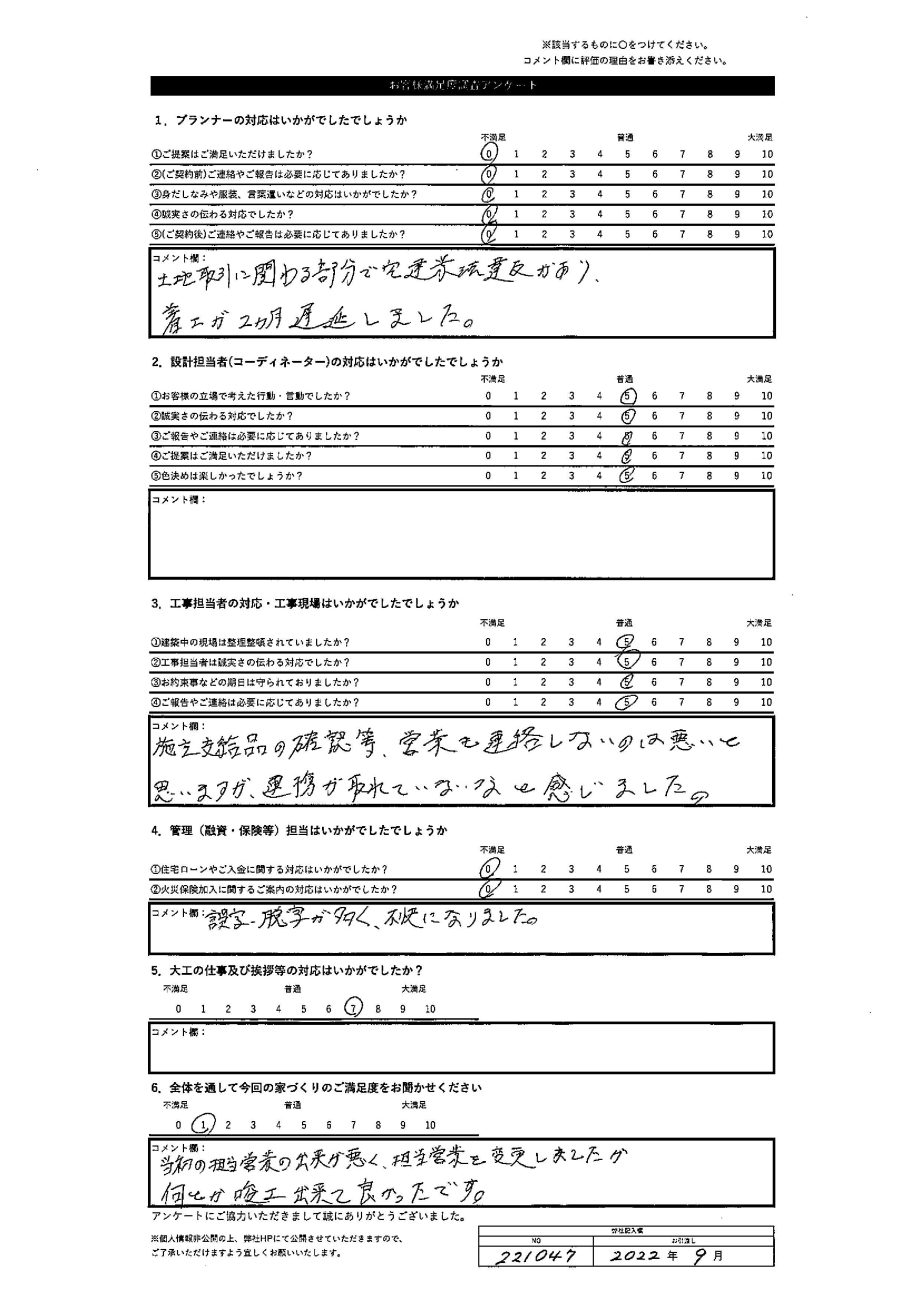 ※該当するものに〇をつけてください。
コメント欄に評価の理由をお書き添えください。
お客様満足度調査アンケート
1．プランナーの対応はいかがでしたでしょうか
不満足 普通 大満足
①ご提案はご満足いただけましたか？ 0 1 2 3 4 5 6 7 8 9 10
②(ご契約前)ご連絡やご報告は必要に応じてありましたか？ 0 1 2 3 4 5 6 7 8 9 10
③身だしなみや服装、言葉遣いなどの対応はいかがでしたか？ 0 1 2 3 4 5 6 7 8 9 10
④誠実さの伝わる対応でしたか？ 0 1 2 3 4 5 6 7 8 9 10
⑤(ご契約後)ご連絡やご報告は必要に応じてありましたか？ 0 1 2 3 4 5 6 7 8 9 10
コメント欄：
土地取引に関わる部分で宅建業法違反があり、
着工が2ヵ月遅延しました。
2．設計担当者(コーディネーター)の対応はいかがでしたでしょうか
不満足 普通 大満足
①お客様の立場で考えた行動・言動でしたか？ 0 1 2 3 4 5 6 7 8 9 10
②誠実さの伝わる対応でしたか？ 0 1 2 3 4 5 6 7 8 9 10
③ご報告やご連絡は必要に応じてありましたか？ 0 1 2 3 4 5 6 7 8 9 10
④ご提案はご満足いただけましたか？ 0 1 2 3 4 5 6 7 8 9 10
⑤色決めは楽しかったでしょうか？ 0 1 2 3 4 5 6 7 8 9 10
コメント欄：
3．工事担当者の対応・工事現場はいかがでしたでしょうか
不満足 普通 大満足
①建築中の現場は整理整頓されていましたか？ 0 1 2 3 4 5 6 7 8 9 10
②工事担当者は誠実さの伝わる対応でしたか？ 0 1 2 3 4 5 6 7 8 9 10
③お約束事などの期日は守られておりましたか？ 0 1 2 3 4 5 6 7 8 9 10
④ご報告やご連絡は必要に応じてありましたか？ 0 1 2 3 4 5 6 7 8 9 10
コメント欄：
施主支給品の確認等、営業も連絡しないのは悪いと
思いますが、連携が取れていないなと感じました。
4．管理（融資・保険等）担当はいかがでしたでしょうか
不満足 普通 大満足
①住宅ローンやご入金に関する対応はいかがでしたか？ 0 1 2 3 4 5 6 7 8 9 10
②火災保険加入に関するご案内の対応はいかがでしたか？ 0 1 2 3 4 5 6 7 8 9 10
コメント欄：誤字・脱字が多く、不快になりました。
5．大工の仕事及び挨拶等の対応はいかがでしたか？
不満足 普通 大満足
0 1 2 3 4 5 6 7 8 9 10
コメント欄：
6．全体を通して今回の家づくりのご満足度をお聞かせください
不満足 普通 大満足
0 1 2 3 4 5 6 7 8 9 10
コメント欄：
当初の担当営業の出来が悪く、担当営業を変更しましたが
何とか竣工出来て良かったです。
アンケートにご協力いただきまして誠にありがとうございました。
※個人情報非公開の上、弊社HPにて公開させていただきますので、
ご了承いただけますよう宜しくお願いいたします。
弊社記入欄
NO お引渡し
221047 2022年 9月